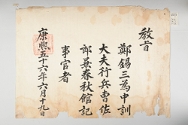 敎旨
鄭錫三為中訓
大夫行兵曹佐
郎兼春秋館記
事官者
康熙五十六年六月十七日